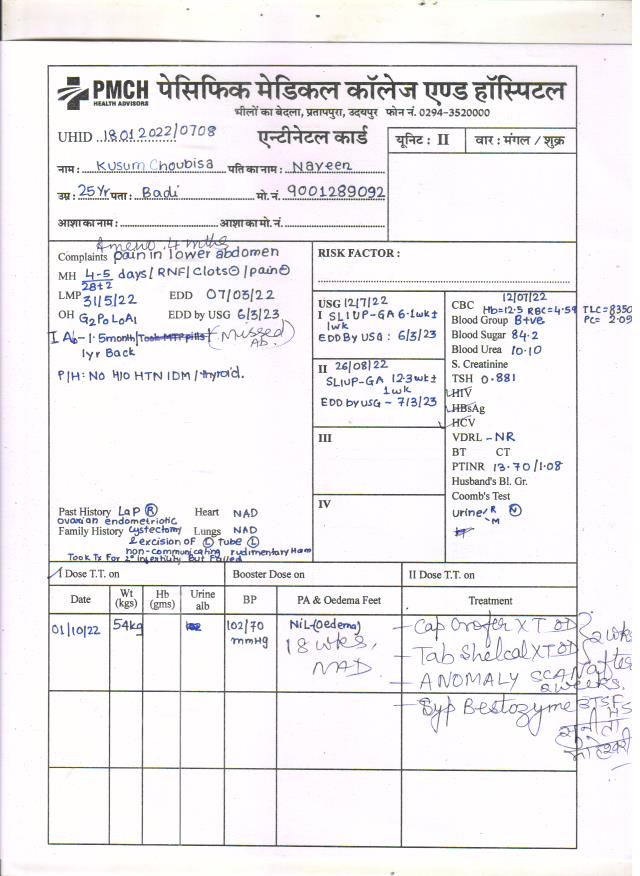 PMCH
HEALTH ADVISORS
पेसिफिक मेडिकल कॉलेज एण्ड हॉस्पिटल
भीलों का बेदला, प्रतापपुरा, उदयपुर फोन नं. 0294-3520000
UHID 18012022/0708
एन्टीनेटल कार्ड
यूनिट : II
वार : मंगल / शुक्र
नाम : Kusum Choubisa पति का नाम : Naveen
उम्र : 25 Yr पता : Badi मो. नं. 9001289092
आशा का नाम : आशा का मो. नं.
Ameno. 4 mths
Complaints pain in lower abdomen
MH 4-5 days / RNF / Clots⊖ / pain⊖
28±2
LMP 31/5/22 EDD 07/03/22
OH G2P0L0A1 EDD by USG 6/3/23
I Ab - 1.5 month / Took MTP pills / (Missed Ab.)
1yr Back
P/H: NO H/O HTN / DM / thyroid.
Past History Lap Ⓡ Heart NAD
ovarian endometriotic
Family History cystectomy Lungs NAD
& excision of Ⓛ tube Ⓛ
non-communicating rudimentary Horn
Took Tx For 2° infertility But Failed
RISK FACTOR :
USG 12/7/22
I SLIUP-GA 6.1wk±
1wk
EDD By USG : 6/3/23
II 26/08/22
SLIUP-GA 12.3wk±
1wk
EDD by USG - 7/3/23
III
IV
12/07/22
CBC Hb=12.5 RBC=4.59 TLC=8350
PC= 2.09
Blood Group B+ve
Blood Sugar 84.2
Blood Urea 10.10
S. Creatinine
TSH 0.881
HIV
HBsAg
HCV
VDRL - NR
BT CT
PTINR 13.70/1.08
Husband's Bl. Gr.
Coomb's Test
urine R/M Ⓝ
I Dose T.T. on
Booster Dose on
II Dose T.T. on
Date Wt (kgs) Hb (gms) Urine alb BP PA & Oedema Feet Treatment
01/10/22 54kg 102/70 mmHg
NiL-(Oedema)
18 wks,
NAD.
- Cap Orofer X T OD
- Tab Shelcal X T OD
2 wks
- ANOMALY SCAN after
2 weeks.
- Syp Bestozyme 2TSF
HS
सुनीता